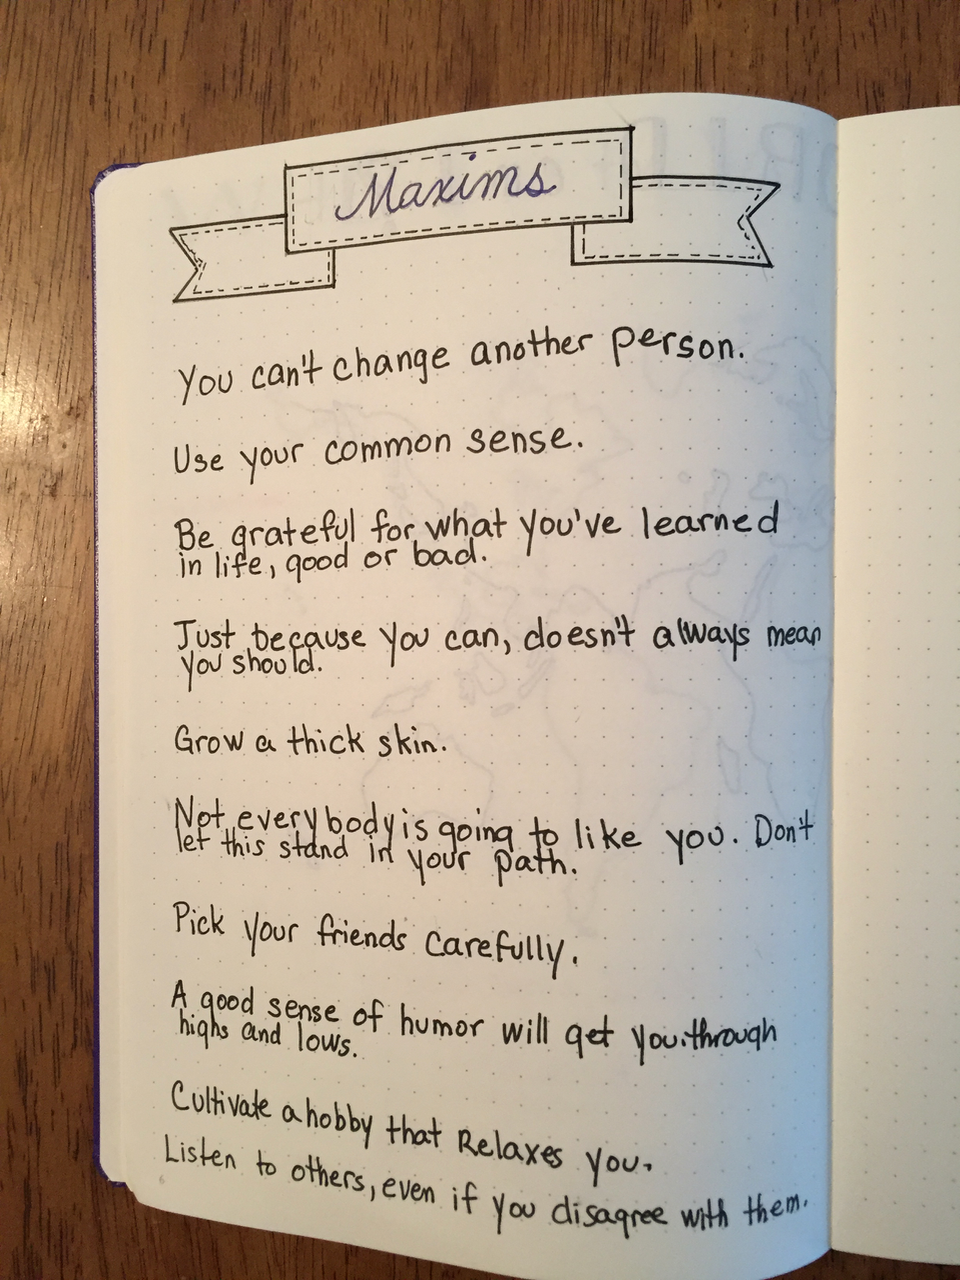 Maxims
You can't change another person.
Use your common sense.
Be grateful for what you've learned
in life, good or bad.
Just because you can, doesn't always mean
you should.
Grow a thick skin.
Not everybody is going to like you. Don't
let this stand in your path.
Pick your friends carefully.
A good sense of humor will get you through
highs and lows.
Cultivate a hobby that Relaxes you.
Listen to others, even if you disagree with them.